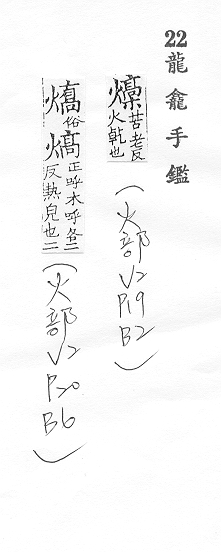 22 龍龕手鑑
燺苦老反
火乾也
(火部 V2 P19 B2)
燆俗熇正呼木呼各二
反熱皃也二
(火部 V2 P20 B6)